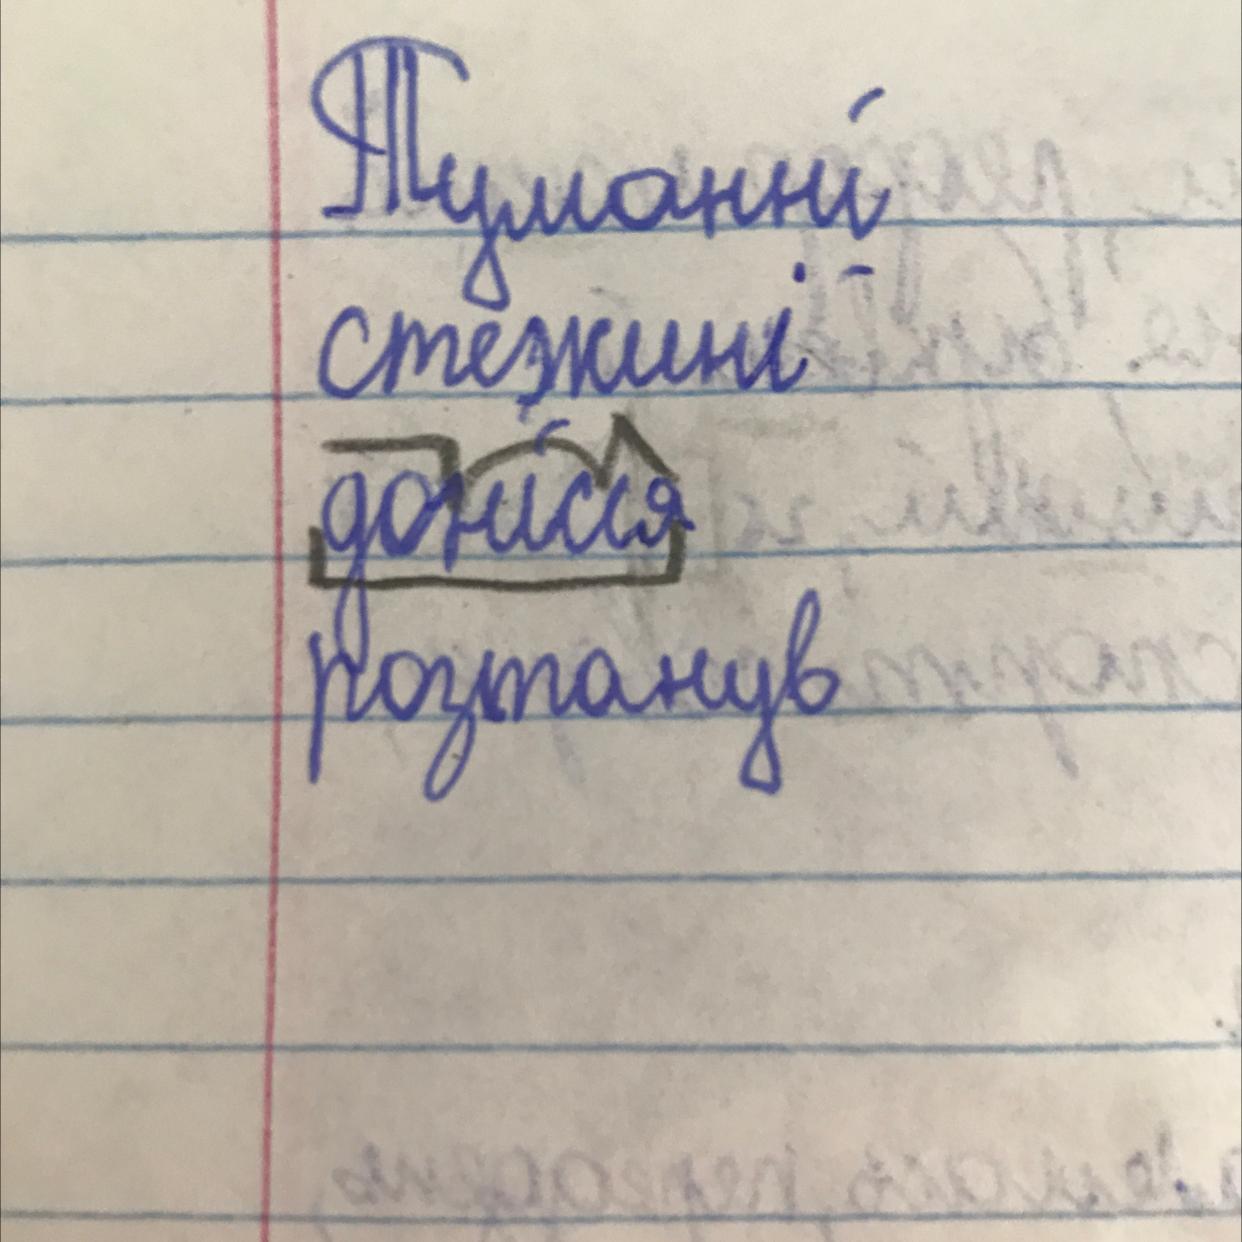 Туманні
стежині
донісся
розтанув